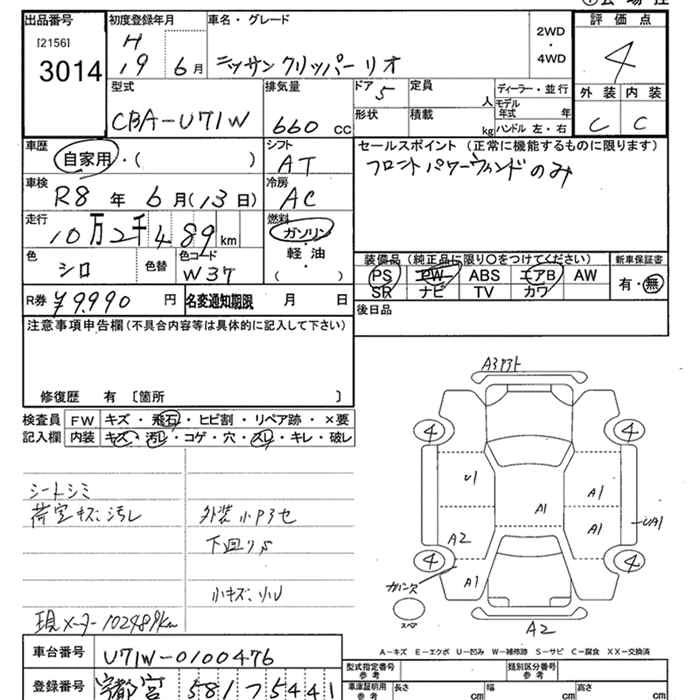 出品番号 初度登録年月 車名・グレード 2WD・4WD 評価点
[2156]
3014
H19 6月 ニッサン クリッパーリオ 4
型式 排気量 ドア 定員 ディーラー・並行 外装 内装
CBA-U71W 660 cc 5 人 モデル年式 年 C C
形状 積載 kg ハンドル 左・右
車歴 シフト セールスポイント（正常に機能するものに限ります）
自家用・( ) AT フロントパワーウィンドのみ
車検 冷房
R8 年 6 月(13日) AC
走行 燃料
10万2千489 km ガソリン・軽油
( )
色 色替 色コード 装備品（純正品に限り○をつけてください） 新車保証書
シロ W37 PS PW ABS エアB AW 有・無
SR ナビ TV カワ
R券 ¥9,990 円 名変通知期限 月 日 後日品
注意事項申告欄(不具合内容等は具体的に記入して下さい)
修復歴 有 〔箇所 〕
検査員 FW キズ・飛石・ヒビ割・リペア跡・×要
記入欄 内装 キズ・汚レ・コゲ・穴・スレ・キレ・破レ
シートシミ
荷室キズ、汚レ 外装小P3セ
下廻りS
小キズ、小U
現メーター102489km
4 4
U1 A1 A1
A2 A1 UA1
4 4
ガソリン A1
スペア
A2
A－キズ E－エクボ U－凹み W－補修跡 S－サビ C－腐食 XX－交換済
車台番号 U71W-0100476
登録番号 宇都宮 581 ソ 5441
型式指定番号 参考 類別区分番号 参考
車庫証明用 参考 長さ cm 幅 cm 高さ cm